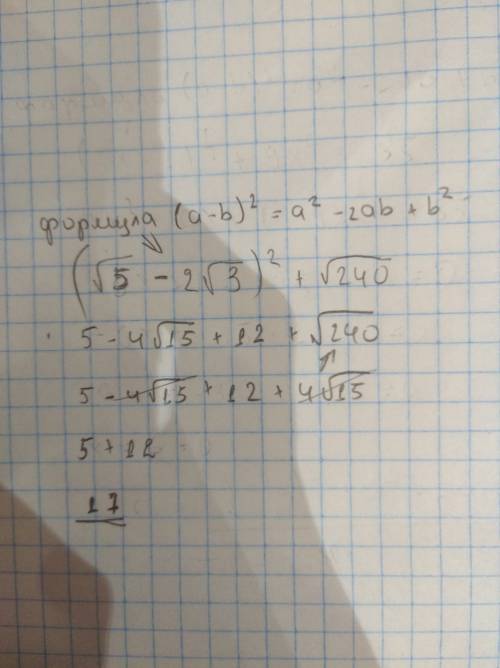 формула (a-b)² = a² - 2ab + b²
(√5 - 2√3)² + √240
5 - 4√15 + 12 + √240
5 - 4√15 + 12 + 4√15
5 + 12
17